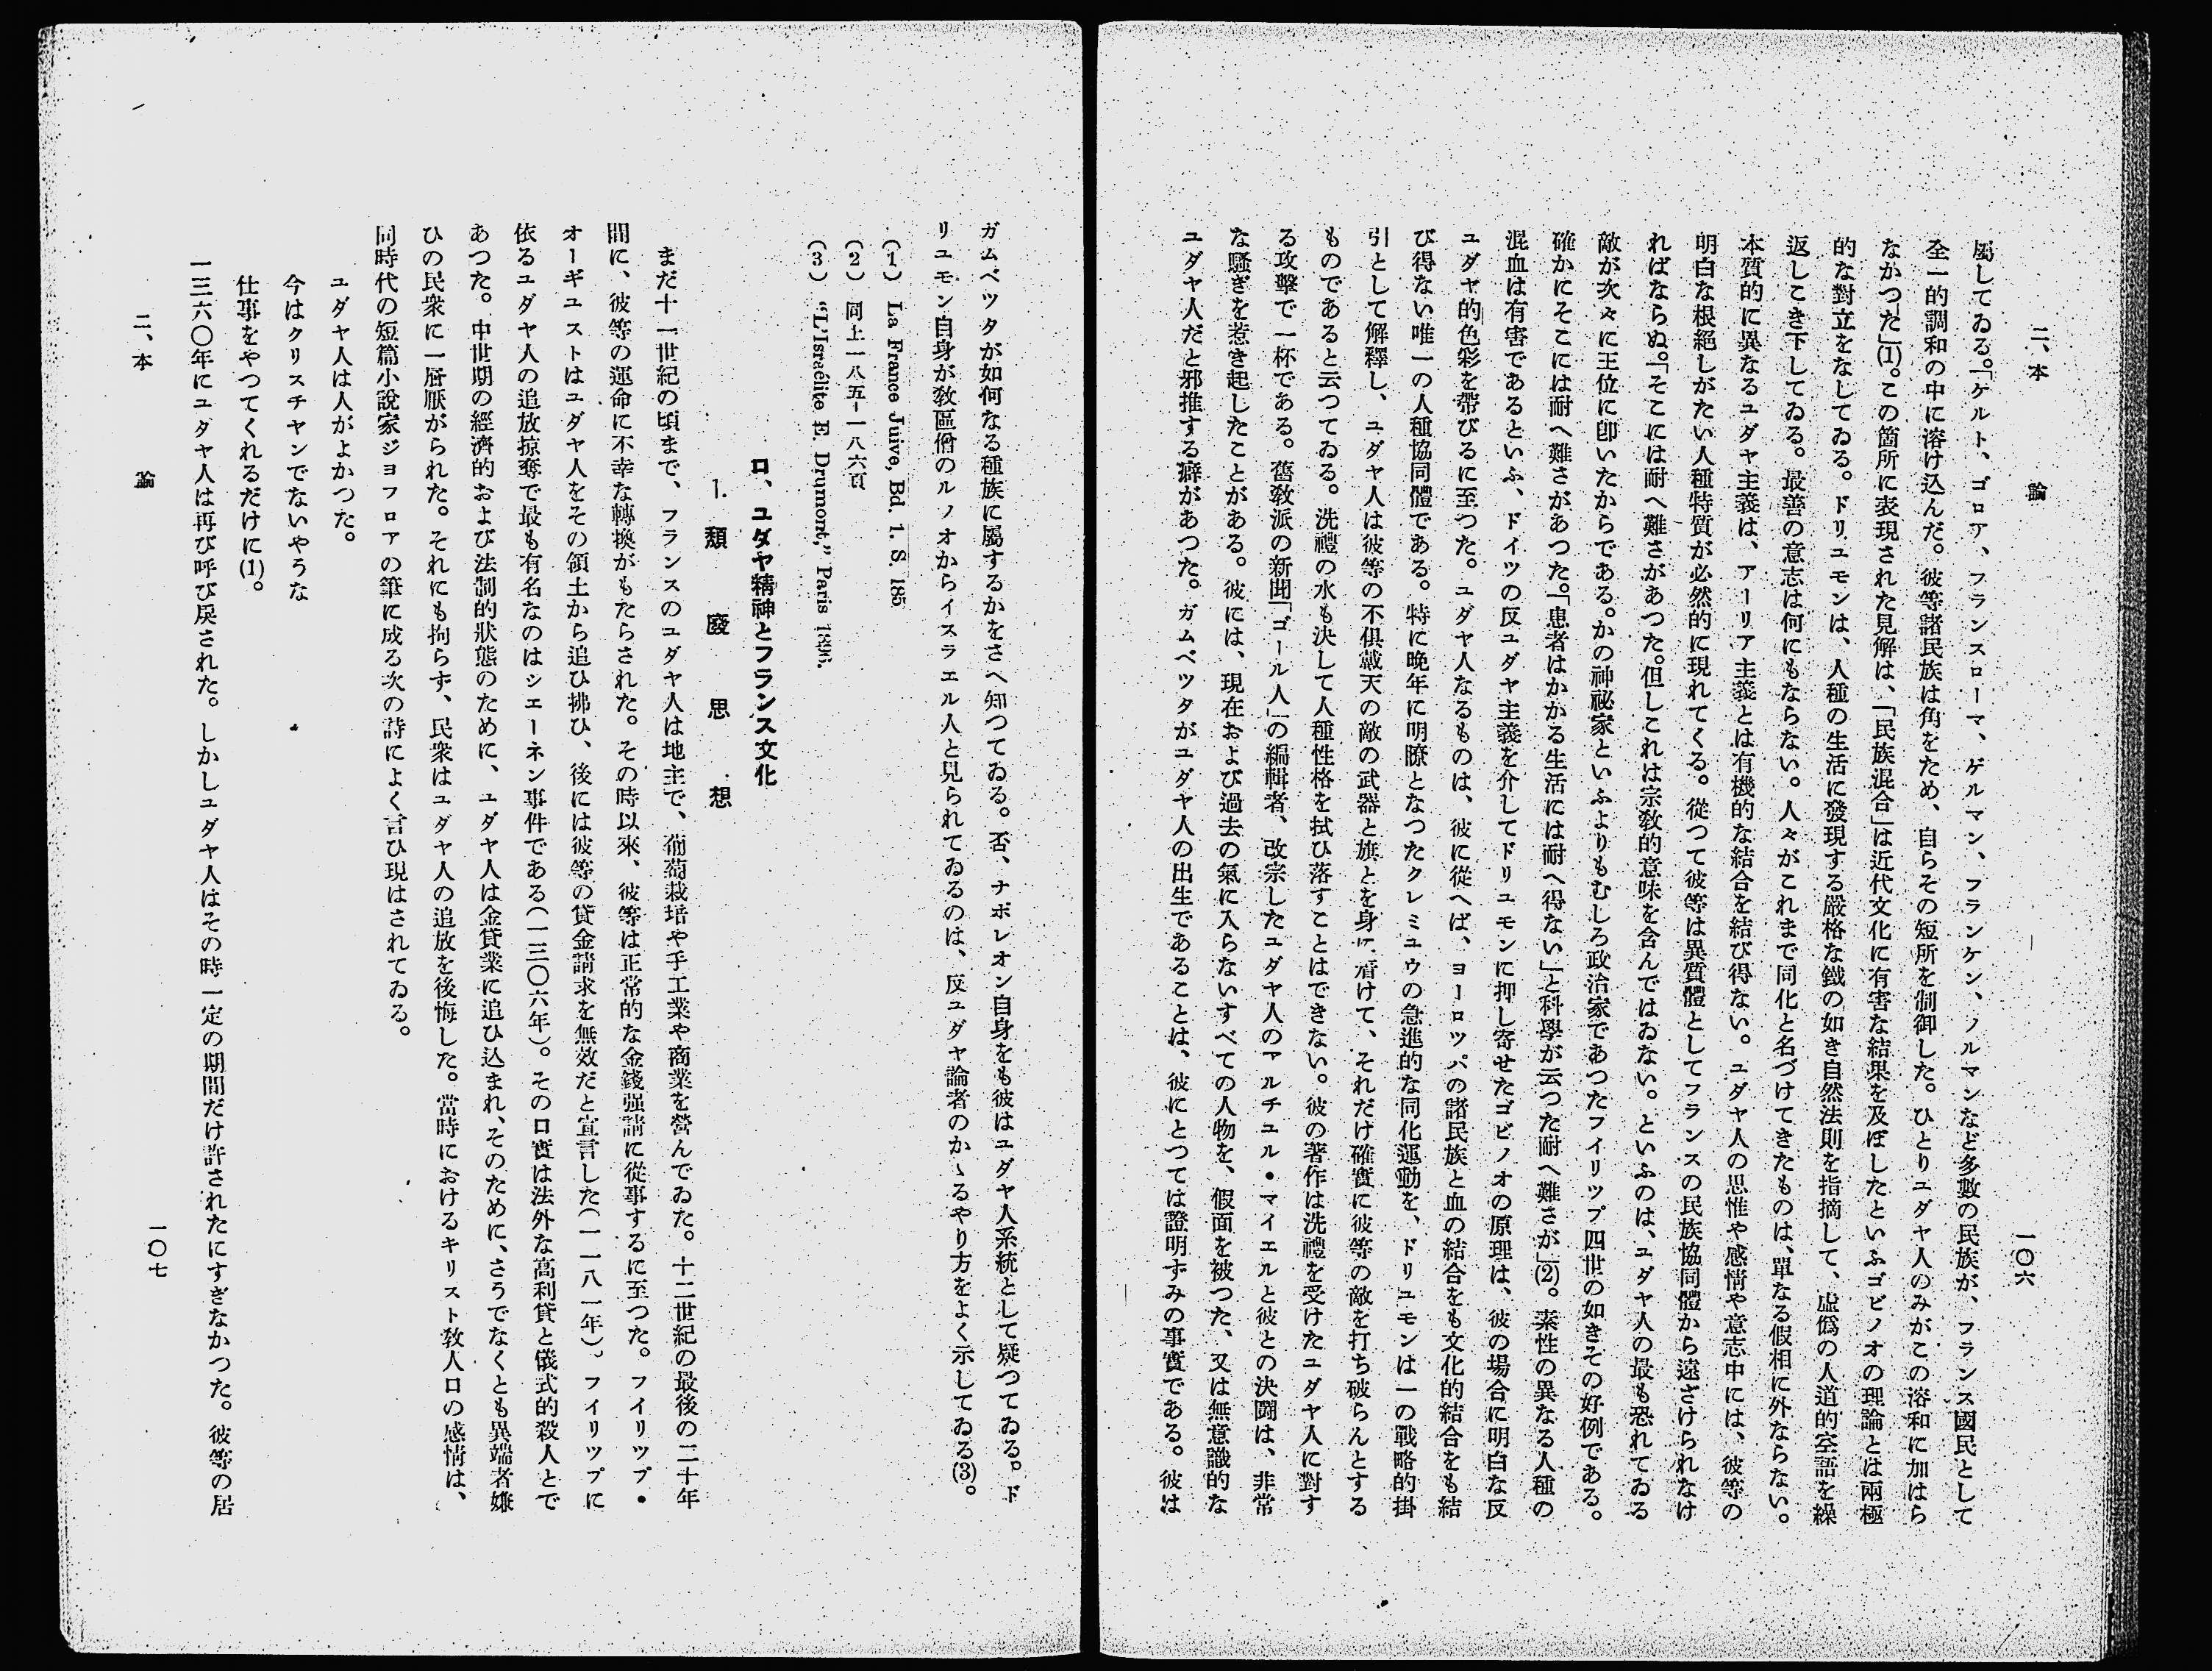 二、本論
一〇六
屬してゐる。「ケルト、ゴロア、フランスローマ、ゲルマン、フランケン、ノルマンなど多數の民族が、フランス國民として
全一的調和の中に溶け込んだ。彼等諸民族は角をため、自らその短所を制御した。ひとりユダヤ人のみがこの溶和に加はら
なかつた」(1)。この箇所に表現された見解は、「民族混合」は近代文化に有害な結果を及ぼしたといふゴビノオの理論とは兩極
的な對立をなしてゐる。ドリユモンは、人種の生活に發現する嚴格な鐵の如き自然法則を指摘して、虛僞の人道的空語を繰
返しこき下してゐる。最善の意志は何にもならない。人々がこれまで同化と名づけてきたものは、單なる假相に外ならない。
本質的に異なるユダヤ主義は、アーリア主義とは有機的な結合を結び得ない。ユダヤ人の思惟や感情や意志中には、彼等の
明白な根絕しがたい人種特質が必然的に現れてくる。從つて彼等は異質體としてフランスの民族協同體から遠ざけられなけ
ればならぬ。「そこには耐へ難さがあつた。但しこれは宗敎的意味を含んではゐない。といふのは、ユダヤ人の最も恐れてゐる
敵が次々に王位に卽いたからである。かの神祕家といふよりもむしろ政治家であつたフイリツプ四世の如きその好例である。
確かにそこには耐へ難さがあつた。「患者はかかる生活には耐へ得ない」と科學が云つた耐へ難さが」(2)。素性の異なる人種の
混血は有害であるといふ、ドイツの反ユダヤ主義を介してドリユモンに押し寄せたゴビノオの原理は、彼の場合に明白な反
ユダヤ的色彩を帶びるに至つた。ユダヤ人なるものは、彼に從へば、ヨーロツパの諸民族と血の結合をも文化的結合をも結
び得ない唯一の人種協同體である。特に晚年に明瞭となつたクレミユウの急進的な同化運動を、ドリユモンは一の戰略的掛
引として解釋し、ユダヤ人は彼等の不俱戴天の敵の武器と旗とを身に着けて、それだけ確實に彼等の敵を打ち破らんとする
ものであると云つてゐる。洗禮の水も決して人種性格を拭ひ落すことはできない。彼の著作は洗禮を受けたユダヤ人に對す
る攻擊で一杯である。舊敎派の新聞「ゴール人」の編輯者、改宗したユダヤ人のアルチユル・マイエルと彼との決鬪は、非常
な騷ぎを惹き起したことがある。彼には、現在および過去の氣に入らないすべての人物を、假面を被つた、又は無意識的な
ユダヤ人だと邪推する癖があつた。ガムベツタがユダヤ人の出生であることは、彼にとつては證明ずみの事實である。彼は
ガムベツタが如何なる種族に屬するかをさへ知つてゐる。否、ナポレオン自身をも彼はユダヤ人系統として疑つてゐる。ド
リユモン自身が敎區僧のルノオからイスラエル人と見られてゐるのは、反ユダヤ論者のかゝるやり方をよく示してゐる(3)。
(1) La France Juive, Bd. 1. S. 185
(2) 同上一八五-一八六頁
(3) “L'Israélite E. Drumont,” Paris 1896.
ロ、ユダヤ精神とフランス文化
1. 頽廢思想
まだ十一世紀の頃まで、フランスのユダヤ人は地主で、葡萄栽培や手工業や商業を營んでゐた。十二世紀の最後の二十年
間に、彼等の運命に不幸な轉換がもたらされた。その時以來、彼等は正常的な金錢强請に從事するに至つた。フイリツプ・
オーギユストはユダヤ人をその領土から追ひ拂ひ、後には彼等の貸金請求を無效だと宣言した(一一八一年)。フイリツプに
依るユダヤ人の追放掠奪で最も有名なのはシエーネン事件である(一三〇六年)。その口實は法外な高利貸と儀式的殺人とで
あつた。中世期の經濟的および法制的狀態のために、ユダヤ人は金貸業に追ひ込まれ、そのために、さうでなくとも異端者嫌
ひの民衆に一層厭がられた。それにも拘らず、民衆はユダヤ人の追放を後悔した。當時におけるキリスト敎人口の感情は、
同時代の短篇小說家ジヨフロアの筆に成る次の詩によく言ひ現はされてゐる。
ユダヤ人は人がよかつた。
今はクリスチヤンでないやうな
仕事をやつてくれるだけに(1)。
一三六〇年にユダヤ人は再び呼び戾された。しかしユダヤ人はその時一定の期間だけ許されたにすぎなかつた。彼等の居
二、本論
一〇七